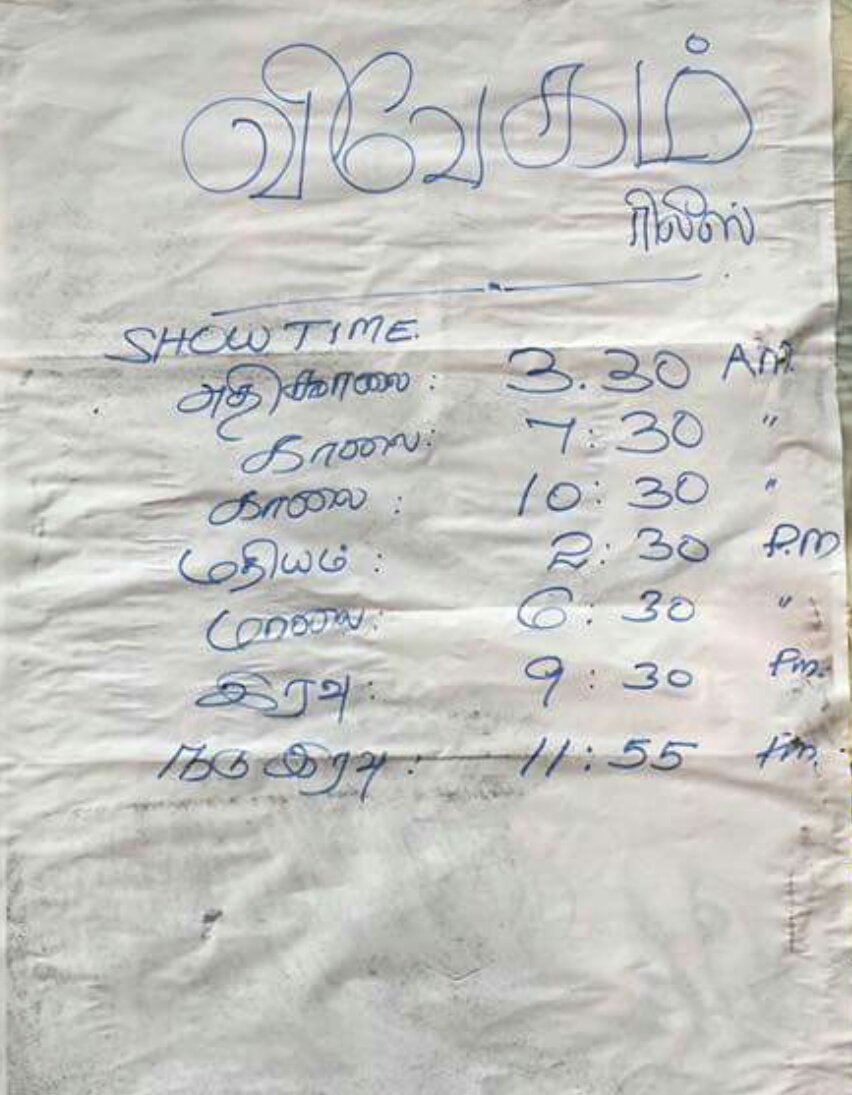 விவேகம்
ரிலீஸ்
SHOW TIME.
அதிகாலை : 3.30 A.M.
காலை: 7:30 "
காலை : 10:30 "
மதியம் : 2:30 P.M
மாலை: 6:30 "
இரவு: 9:30 Pm.
நடு இரவு : 11:55 Pm.